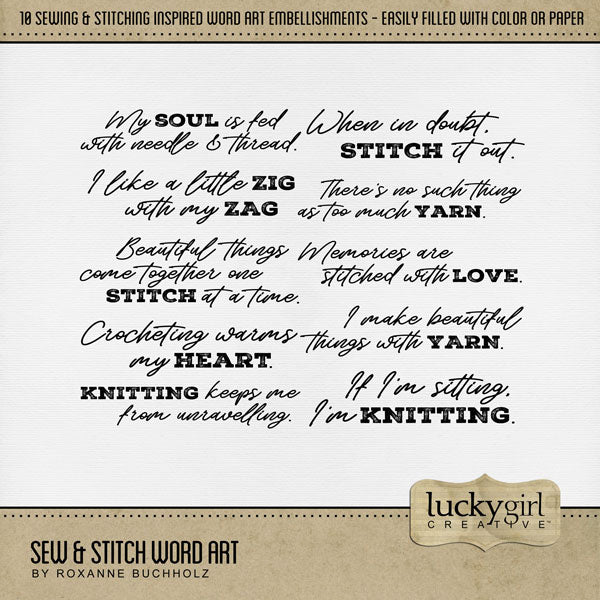 10 SEWING & STITCHING INSPIRED WORD ART EMBELLISHMENTS - EASILY FILLED WITH COLOR OR PAPER
My SOUL is fed
with needle & thread.
When in doubt,
STITCH it out.
I like a little ZIG
with my ZAG
There's no such thing
as too much YARN.
Beautiful things
come together one
STITCH at a time.
Memories are
stitched with LOVE.
Crocheting warms
my HEART.
I make beautiful
things with YARN.
KNITTING keeps me
from unravelling.
If I'm sitting,
I'm KNITTING.
luckygirl
CREATIVE™
SEW & STITCH WORD ART
BY ROXANNE BUCHHOLZ